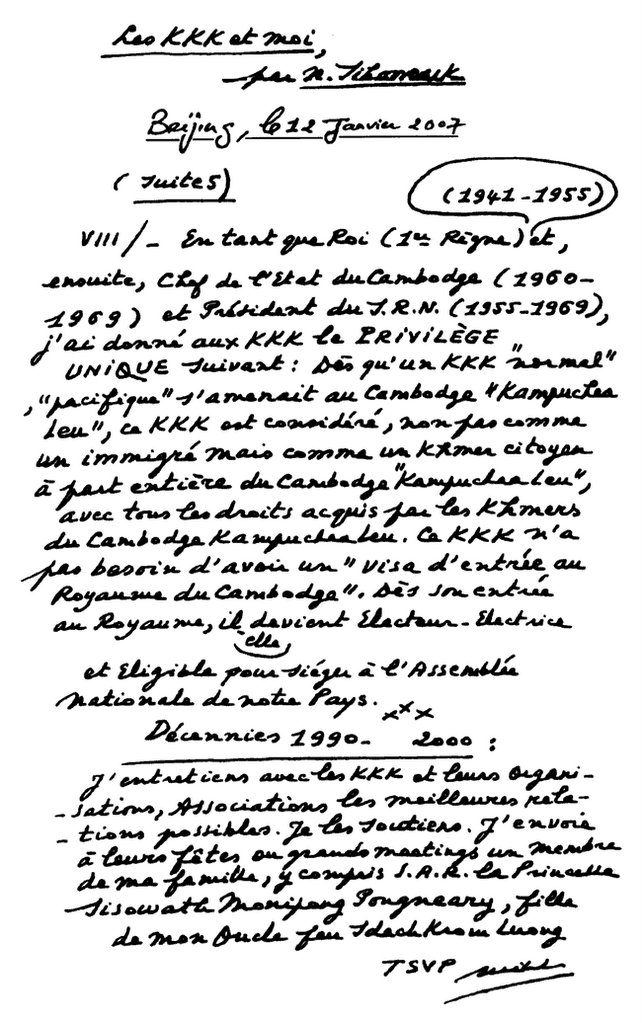 Les KKK et moi,
par N. Sihanouk
Beijing, le 12 Janvier 2007
(Suite 5)
(1941-1955)
VIII/- En tant que Roi (1er Règne) et,
ensuite, Chef de l'Etat du Cambodge (1960-
1969) et Président du S.R.N. (1955-1969),
j'ai donné aux KKK le PRIVILÈGE
UNIQUE suivant : Dès qu'un KKK "normal"
, "pacifique" s'amenait au Cambodge "Kampuchea
Leu", ce KKK est considéré, non pas comme
un immigré mais comme un Khmer citoyen
à part entière du Cambodge "Kampuchea Leu",
avec tous les droits acquis par les Khmers
du Cambodge Kampuchea Leu. Ce KKK n'a
pas besoin d'avoir un "visa d'entrée au
Royaume du Cambodge". Dès son entrée
au Royaume, il devient Electeur-Electrice
elle
et Eligible pour siéger à l'Assemblée
Nationale de notre Pays.
xxx
Décennies 1990- 2000 :
J'entretiens avec les KKK et leurs Organi-
-sations, Associations les meilleures rela-
-tions possibles. Je les soutiens. J'envoie
à leurs fêtes ou grands meetings un membre
de ma famille, y compris S.A.R. la Princesse
Sisowath Monipong Pongneary, fille
de mon Oncle feu Sdach Krom Luong
TSVP